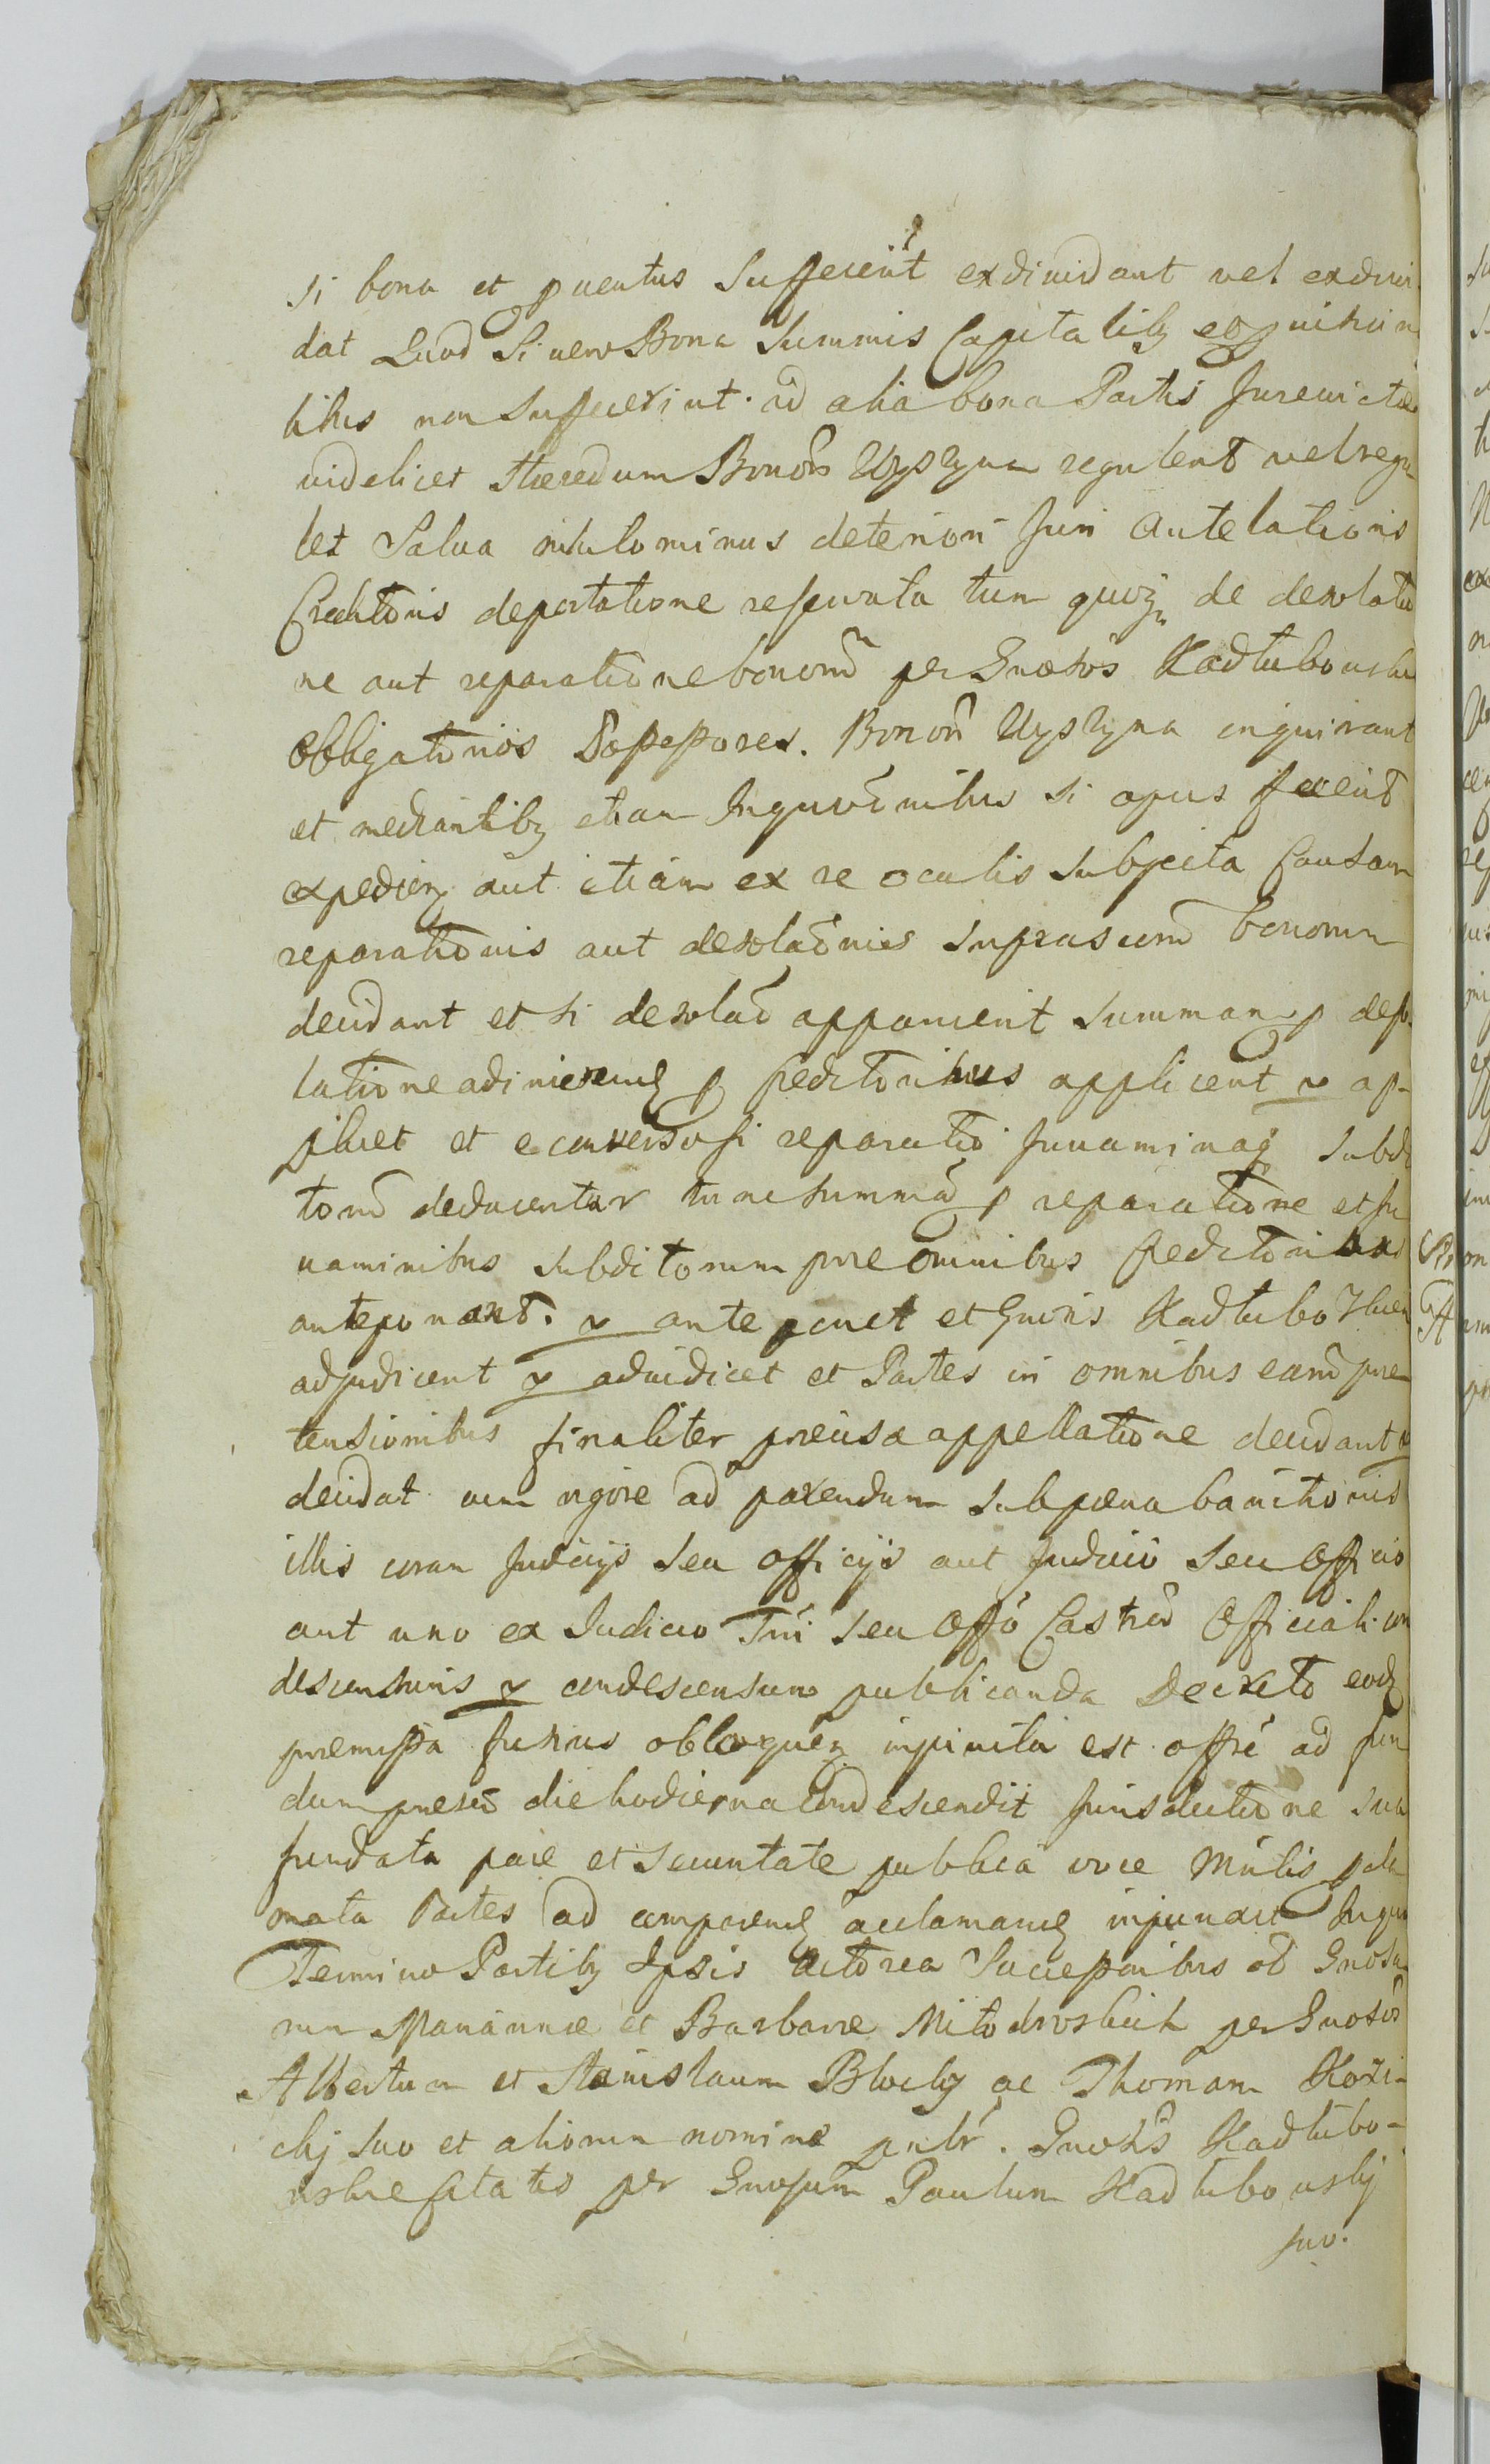 si bona et puentus suffecerit exdiuidant uel exdiui
dat Quod si uero Bona Summis Capitalibz et
libus non suffecerint ad alia bona Partis Jureuictae
uidelicet Haeredum Bonorū Uyszyna regulent uel regu
let Salua nihilominus deteriori Juri Antelationis
Creditoris deportatione reseruata tum quoqz de desolatio
ne aut reparatione bonorū per Gnosos Kadłubouskie
obligatorios Possessores. Bonorū Uyszyna inquirant
et mediantibz etiam Inquōnibus si opus fuerit
expedien aut etiam ex re oculis subjecta Causam
reparationis aut desolaōnis suprascrū bonorum
decidant et si desolaō apparuerit summam p deso
latione adinuenend p Creditoribus applicent v ap-
plicet et econuerso si reparatio Juuaminaq subdi
torū deducentur tunc summā p reparatione et Ju
uaminibus subditorum prae omnibus Creditoribus
anteponant. v anteponet et Gnoris Kadłubo
adjudicent v adiudicet et Partes in omnibus earū prae
tensionibus finaliter praecisa appellatione decidant v
decidat cum rigore ad parendum sub paena banitionis
illis coram Judicijs seu officijs aut Judicio seu Officio
aut uno ex Judicio Trri seu Offo Castrō Officiali con
descensuris v condescensuro publicanda Decreto eod
praemissa fusius obloquen inniuita est offe ad fun
dum praeseō die hodierna condescendit Jurisdictione sua
fundata pace et securitate publica uoce Mnlis pcla
mata Partes ad comparend acclamand injunxit In quo
Termino Partibz Ipsis Actorea Succeſsoribus od Gnosa
rum Mariannae et Barbarae Miłodroskich per Gnosos
Albertum et Stanislaum Błocky ac Thomam Kozi-
ckj suo et aliorum nomine . Gnosis Kadłubo-
uskie Citatis per Gnosum Paulum Kadłubouskj
suo.